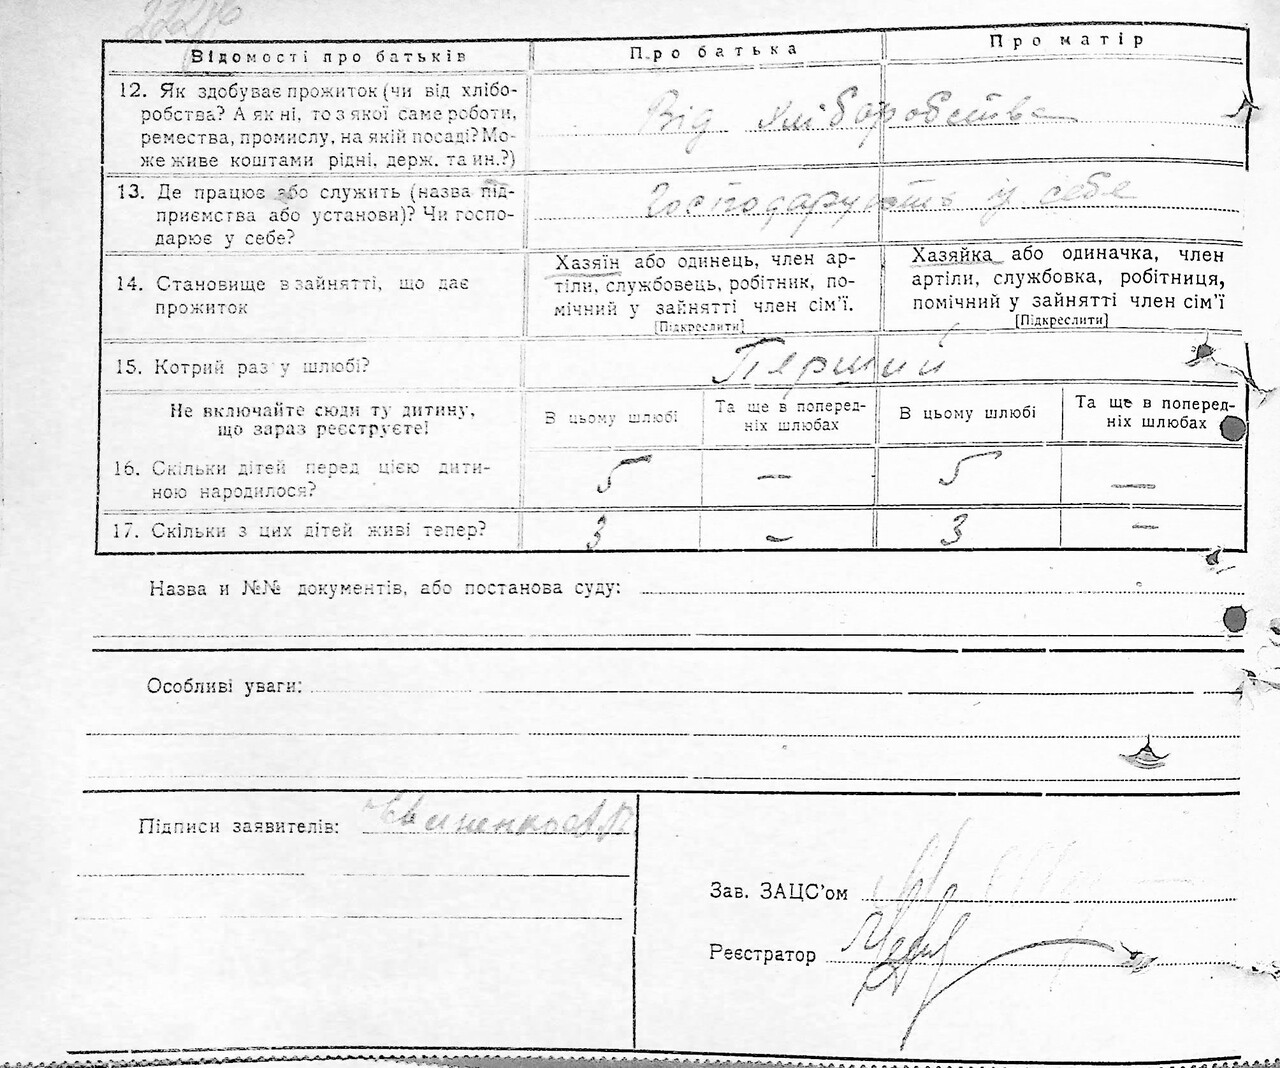 Відомості про батьків
Про батька
Про матір
12. Як здобуває прожиток (чи від хлібо-
робства? А як ні, то з якої саме роботи,
ремества, промислу, на якій посаді? Мо-
же живе коштами рідні, держ. та ин.?)
Від хліборобства
13. Де працює або служить (назва під-
приємства або установи)? Чи госпо-
дарює у себе?
Господарують у себе
14. Становище в зайнятті, що дає
прожиток
Хазяїн або одинець, член ар-
тілі, службовець, робітник, по-
мічний у зайнятті член сім’ї.
[Підкреслити]
Хазяйка або одиначка, член
артіли, службовка, робітниця,
помічний у зайнятті член сім’ї
[Підкреслити]
15. Котрий раз у шлюбі?
Перший
Не включайте сюди ту дитину,
що зараз реєструєте!
В цьому шлюбі
Та ще в поперед-
ніх шлюбах
В цьому шлюбі
Та ще в поперед-
ніх шлюбах
16. Скільки дітей перед цією дити-
ною народилося?
5 — 5 —
17. Скільки з цих дітей живі тепер?
3 — 3 —
Назва и №№ документів, або постанова суду:
Особливі уваги:
Підписи заявителів:
Зав. ЗАЦС’ом
Реєстратор